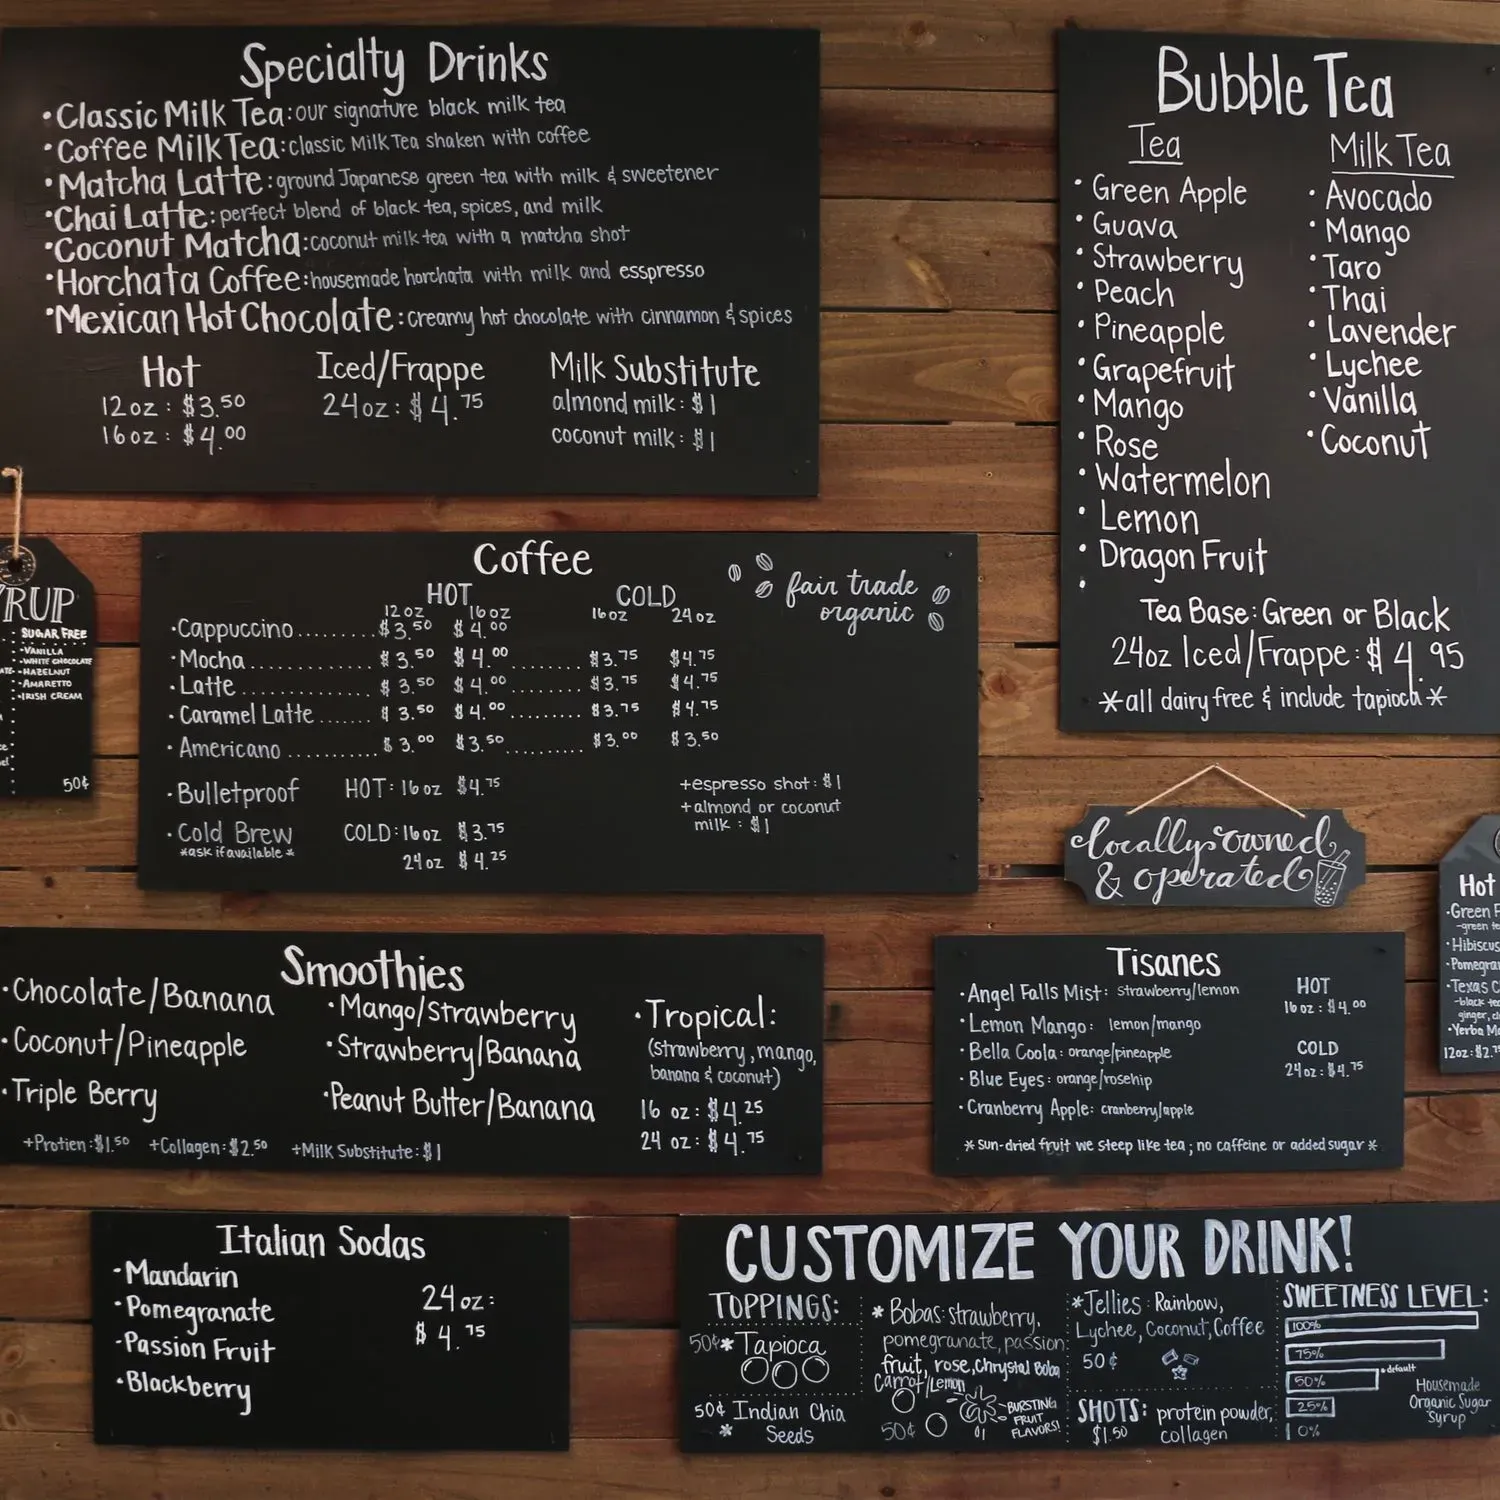 Specialty Drinks
•Classic Milk Tea: our signature black milk tea
•Coffee Milk Tea: classic Milk Tea shaken with coffee
•Matcha Latte: ground Japanese green tea with milk & sweetener
•Chai Latte: perfect blend of black tea, spices, and milk
•Coconut Matcha: coconut milk tea with a matcha shot
•Horchata Coffee: housemade horchata with milk and esspresso
•Mexican Hot Chocolate: creamy hot chocolate with cinnamon & spices
Hot
12oz: $3.50
16oz: $4.00
Iced/Frappe
24oz: $4.75
Milk Substitute
almond milk: $1
coconut milk: $1
Bubble Tea
Tea
• Green Apple
• Guava
• Strawberry
• Peach
• Pineapple
• Grapefruit
• Mango
• Rose
• Watermelon
• Lemon
• Dragon Fruit
•
Milk Tea
• Avocado
• Mango
• Taro
• Thai
• Lavender
• Lychee
• Vanilla
• Coconut
Tea Base: Green or Black
24oz Iced/Frappe: $4.95
*all dairy free & include tapioca*
RUP
SUGAR FREE
-VANILLA
-WHITE CHOCOLATE
-HAZELNUT
-AMARETTO
-IRISH CREAM
50¢
Coffee
fair trade
organic
HOT COLD
12oz 16oz 16oz 24oz
•Cappuccino......... $3.50 $4.00
•Mocha............. $3.50 $4.00........ $3.75 $4.75
•Latte.............. $3.50 $4.00........ $3.75 $4.75
•Caramel Latte....... $3.50 $4.00........ $3.75 $4.75
•Americano........... $3.00 $3.50........ $3.00 $3.50
•Bulletproof HOT: 16oz $4.75
•Cold Brew COLD: 16oz $3.75
*ask if available*
24oz $4.25
+espresso shot: $1
+almond or coconut
milk: $1
locally owned
& operated
Smoothies
•Chocolate/Banana
•Coconut/Pineapple
•Triple Berry
•Mango/Strawberry
•Strawberry/Banana
•Peanut Butter/Banana
•Tropical:
(strawberry, mango,
banana & coconut)
16 oz: $4.25
24 oz: $4.75
+Protien: $1.50 +Collagen: $2.50 +Milk Substitute: $1
Tisanes
•Angel Falls Mist: strawberry/lemon
•Lemon Mango: lemon/mango
•Bella Coola: orange/pineapple
•Blue Eyes: orange/rosehip
•Cranberry Apple: cranberry/apple
HOT
16oz: $4.00
COLD
24oz: $4.75
*sun-dried fruit we steep like tea; no caffeine or added sugar*
Hot
•Green
-green
•Hibiscus
•Texas
ginger,
•Yerba
Italian Sodas
-Mandarin
•Pomegranate
-Passion Fruit
•Blackberry
24oz:
$4.75
CUSTOMIZE YOUR DRINK!
TOPPINGS:
50¢* Tapioca
50¢ Indian Chia
* Seeds
* Bobas: strawberry,
pomegranate, passion
fruit, rose, Chrystal Boba
Carrot/Lemon
50¢
BURSTING
FRUIT
FLAVORS!
*Jellies: Rainbow,
Lychee, Coconut, Coffee
50¢
SHOTS: protein powder,
$1.50 collagen
SWEETNESS LEVEL:
100%
75%
50% default
25%
0%
Housemade
Organic Sugar
Syrup